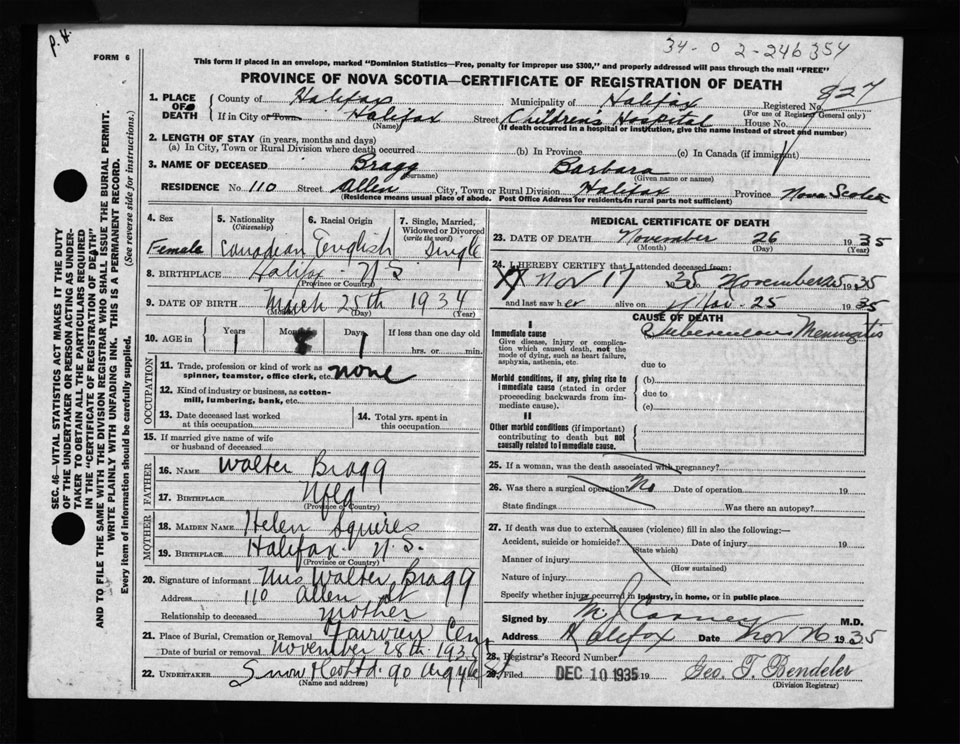 P. H.
34-0 2-246 354
FORM 6
This form if placed in an envelope, marked "Dominion Statistics—Free, penalty for improper use $300," and properly addressed will pass through the mail "FREE"
PROVINCE OF NOVA SCOTIA—CERTIFICATE OF REGISTRATION OF DEATH
SEC. 46—VITAL STATISTICS ACT MAKES IT THE DUTY
OF THE UNDERTAKER OR PERSON ACTING AS UNDER-
TAKER TO OBTAIN ALL THE PARTICULARS REQUIRED
IN THE "CERTIFICATE OF REGISTRATION OF DEATH"
AND TO FILE THE SAME WITH THE DIVISION REGISTRAR WHO SHALL ISSUE THE BURIAL PERMIT.
WRITE PLAINLY WITH UNFADING INK. THIS IS A PERMANENT RECORD.
Every item of information should be carefully supplied. (See reverse side for instructions.)
1. PLACE OF DEATH
County of Halifax Municipality of Halifax Registered No. 827
(For use of Registrar General only)
If in City or Town Halifax Street Childrens Hospital House No.
(Name) (If death occurred in a hospital or institution, give the name instead of street and number)
2. LENGTH OF STAY (in years, months and days)
(a) In City, Town or Rural Division where death occurred (b) In Province (c) In Canada (if immigrant)
3. NAME OF DECEASED Bragg Barbara
(Surname) (Given name or names)
RESIDENCE No. 110 Street Allen City, Town or Rural Division Halifax Province Nova Scotia
(Residence means usual place of abode. Post Office Address for residents in rural parts not sufficient)
4. Sex 5. Nationality (Citizenship) 6. Racial Origin 7. Single, Married, Widowed or Divorced (write the word)
Female Canadian English Single
8. BIRTHPLACE Halifax N.S.
(Province or Country)
9. DATE OF BIRTH March 25th 1934
(Month) (Day) (Year)
10. AGE in Years Months Days If less than one day old
1 8 1 hrs. or min.
OCCUPATION
11. Trade, profession or kind of work as spinner, teamster, office clerk, etc. none
12. Kind of industry or business, as cotton-mill, lumbering, bank, etc.
13. Date deceased last worked at this occupation
14. Total yrs. spent in this occupation
15. If married give name of wife or husband of deceased
FATHER
16. NAME Walter Bragg
17. BIRTHPLACE Nfld
(Province or Country)
MOTHER
18. MAIDEN NAME Helen Squires
19. BIRTHPLACE Halifax N.S.
(Province or Country)
20. Signature of informant Mrs Walter Bragg
Address 110 Allen St
Relationship to deceased mother
21. Place of Burial, Cremation or Removal Fairview Cem
Date of burial or removal November 28th 1935
22. UNDERTAKER Snow & Co Ltd. 90 Argyle St
(Name and address)
MEDICAL CERTIFICATE OF DEATH
23. DATE OF DEATH November 26 1935
(Month) (Day) (Year)
24. I HEREBY CERTIFY that I attended deceased from:
Nov 17 1935 November 25 1935
and last saw her alive on Nov. 25 1935
CAUSE OF DEATH
I
Immediate cause
Give disease, injury or complication which caused death, not the mode of dying, such as heart failure, asphyxia, asthenia, etc.
Tuberculous Meningitis
due to
Morbid conditions, if any, giving rise to immediate cause (stated in order proceeding backwards from immediate cause).
(b)
due to
(c)
II
Other morbid conditions (if important) contributing to death but not causally related to immediate cause.
25. If a woman, was the death associated with pregnancy?
26. Was there a surgical operation No Date of operation 19
State findings Was there an autopsy?
27. If death was due to external causes (violence) fill in also the following:—
Accident, suicide or homicide? Date of injury 19
(State which)
Manner of injury
(How sustained)
Nature of injury
Specify whether injury occurred in industry, in home, or in public place
Signed by M.D.
Address Halifax Date Nov 26 1935
28. Registrar's Record Number
29. Filed DEC 10 1935 19 Geo. T. Bendeler
(Division Registrar)